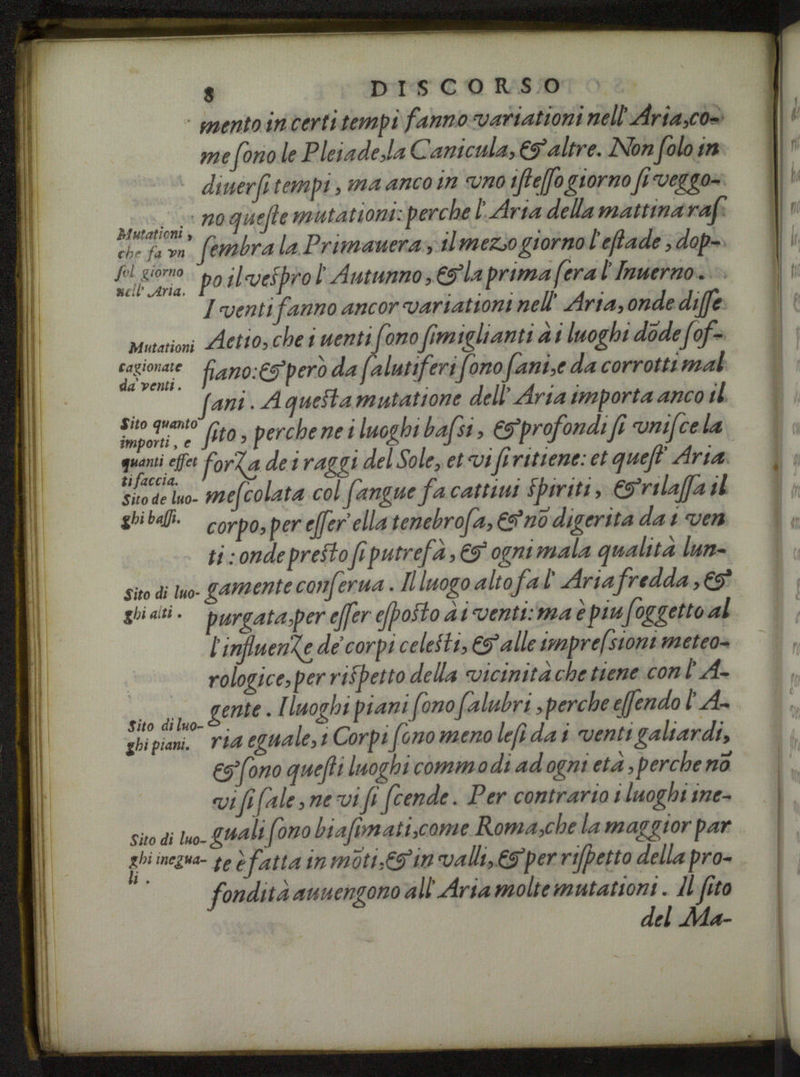 8 DISCORSO
mento in certi tempi fanno variationi nell' Aria,co-
me ſono le Pleiade,la Canicula, & altre. Non ſolo in
diuerſi tempi, ma anco in vno iſteſſo giorno ſi veggo-
no queſte mutationi: perche l' Aria della mattina raſ
Mutationi,
che fa vn
ſol giorno
nell' Aria.
ſembra la Primauera, il mezo giorno l'eſtade, dop-
po il veſpro l' Autunno, & la prima ſera l' Inuerno.
I venti fanno ancor variationi nell' Aria, onde diſſe
Mutationi
cagionate
da venti.
Aetio, che i uenti ſono ſimiglianti à i luoghi dōde ſof-
fiano: & però da ſalutiferi ſono ſani,e da corrotti mal
ſani. A queſta mutatione dell' Aria importa anco il
Sito quanto
importi, e
quanti effet
ti faccia.
ſito, perche ne i luoghi baſsi, & profondi ſi vniſce la
forza de i raggi del Sole, et vi ſi ritiene: et queſt' Aria
Sito de luo-
ghi baſſi.
meſcolata col ſangue fa cattiui ſpiriti, & rilaſſa il
corpo, per eſſer' ella tenebroſa, & nō digerita da i ven
ti: onde preſto ſi putrefà, & ogni mala qualità lun-
Sito di luo-
ghi alti.
gamente conſerua. Il luogo alto fa l' Aria fredda, &
purgata,per eſſer eſpoſto à i venti: ma è piu ſoggetto al
l'influenze de' corpi celeſti, & alle impreſsioni meteo-
rologice, per riſpetto della vicinità che tiene con l' A-
gente. I luoghi piani ſono ſalubri, perche eſſendo l' A-
Sito di luo-
ghi piani.
ria eguale, i Corpi ſono meno leſi da i venti galiardi,
& ſono queſti luoghi commodi ad ogni età, perche nō
vi ſi ſale, ne vi ſi ſcende. Per contrario i luoghi ine-
Sito di luo-
ghi inegua-
li.
guali ſono biaſimati,come Roma,che la maggior par
te è fatta in mōti, & in valli, & per riſpetto della pro-
fondità auuengono all' Aria molte mutationi. Il ſito
del Ma-